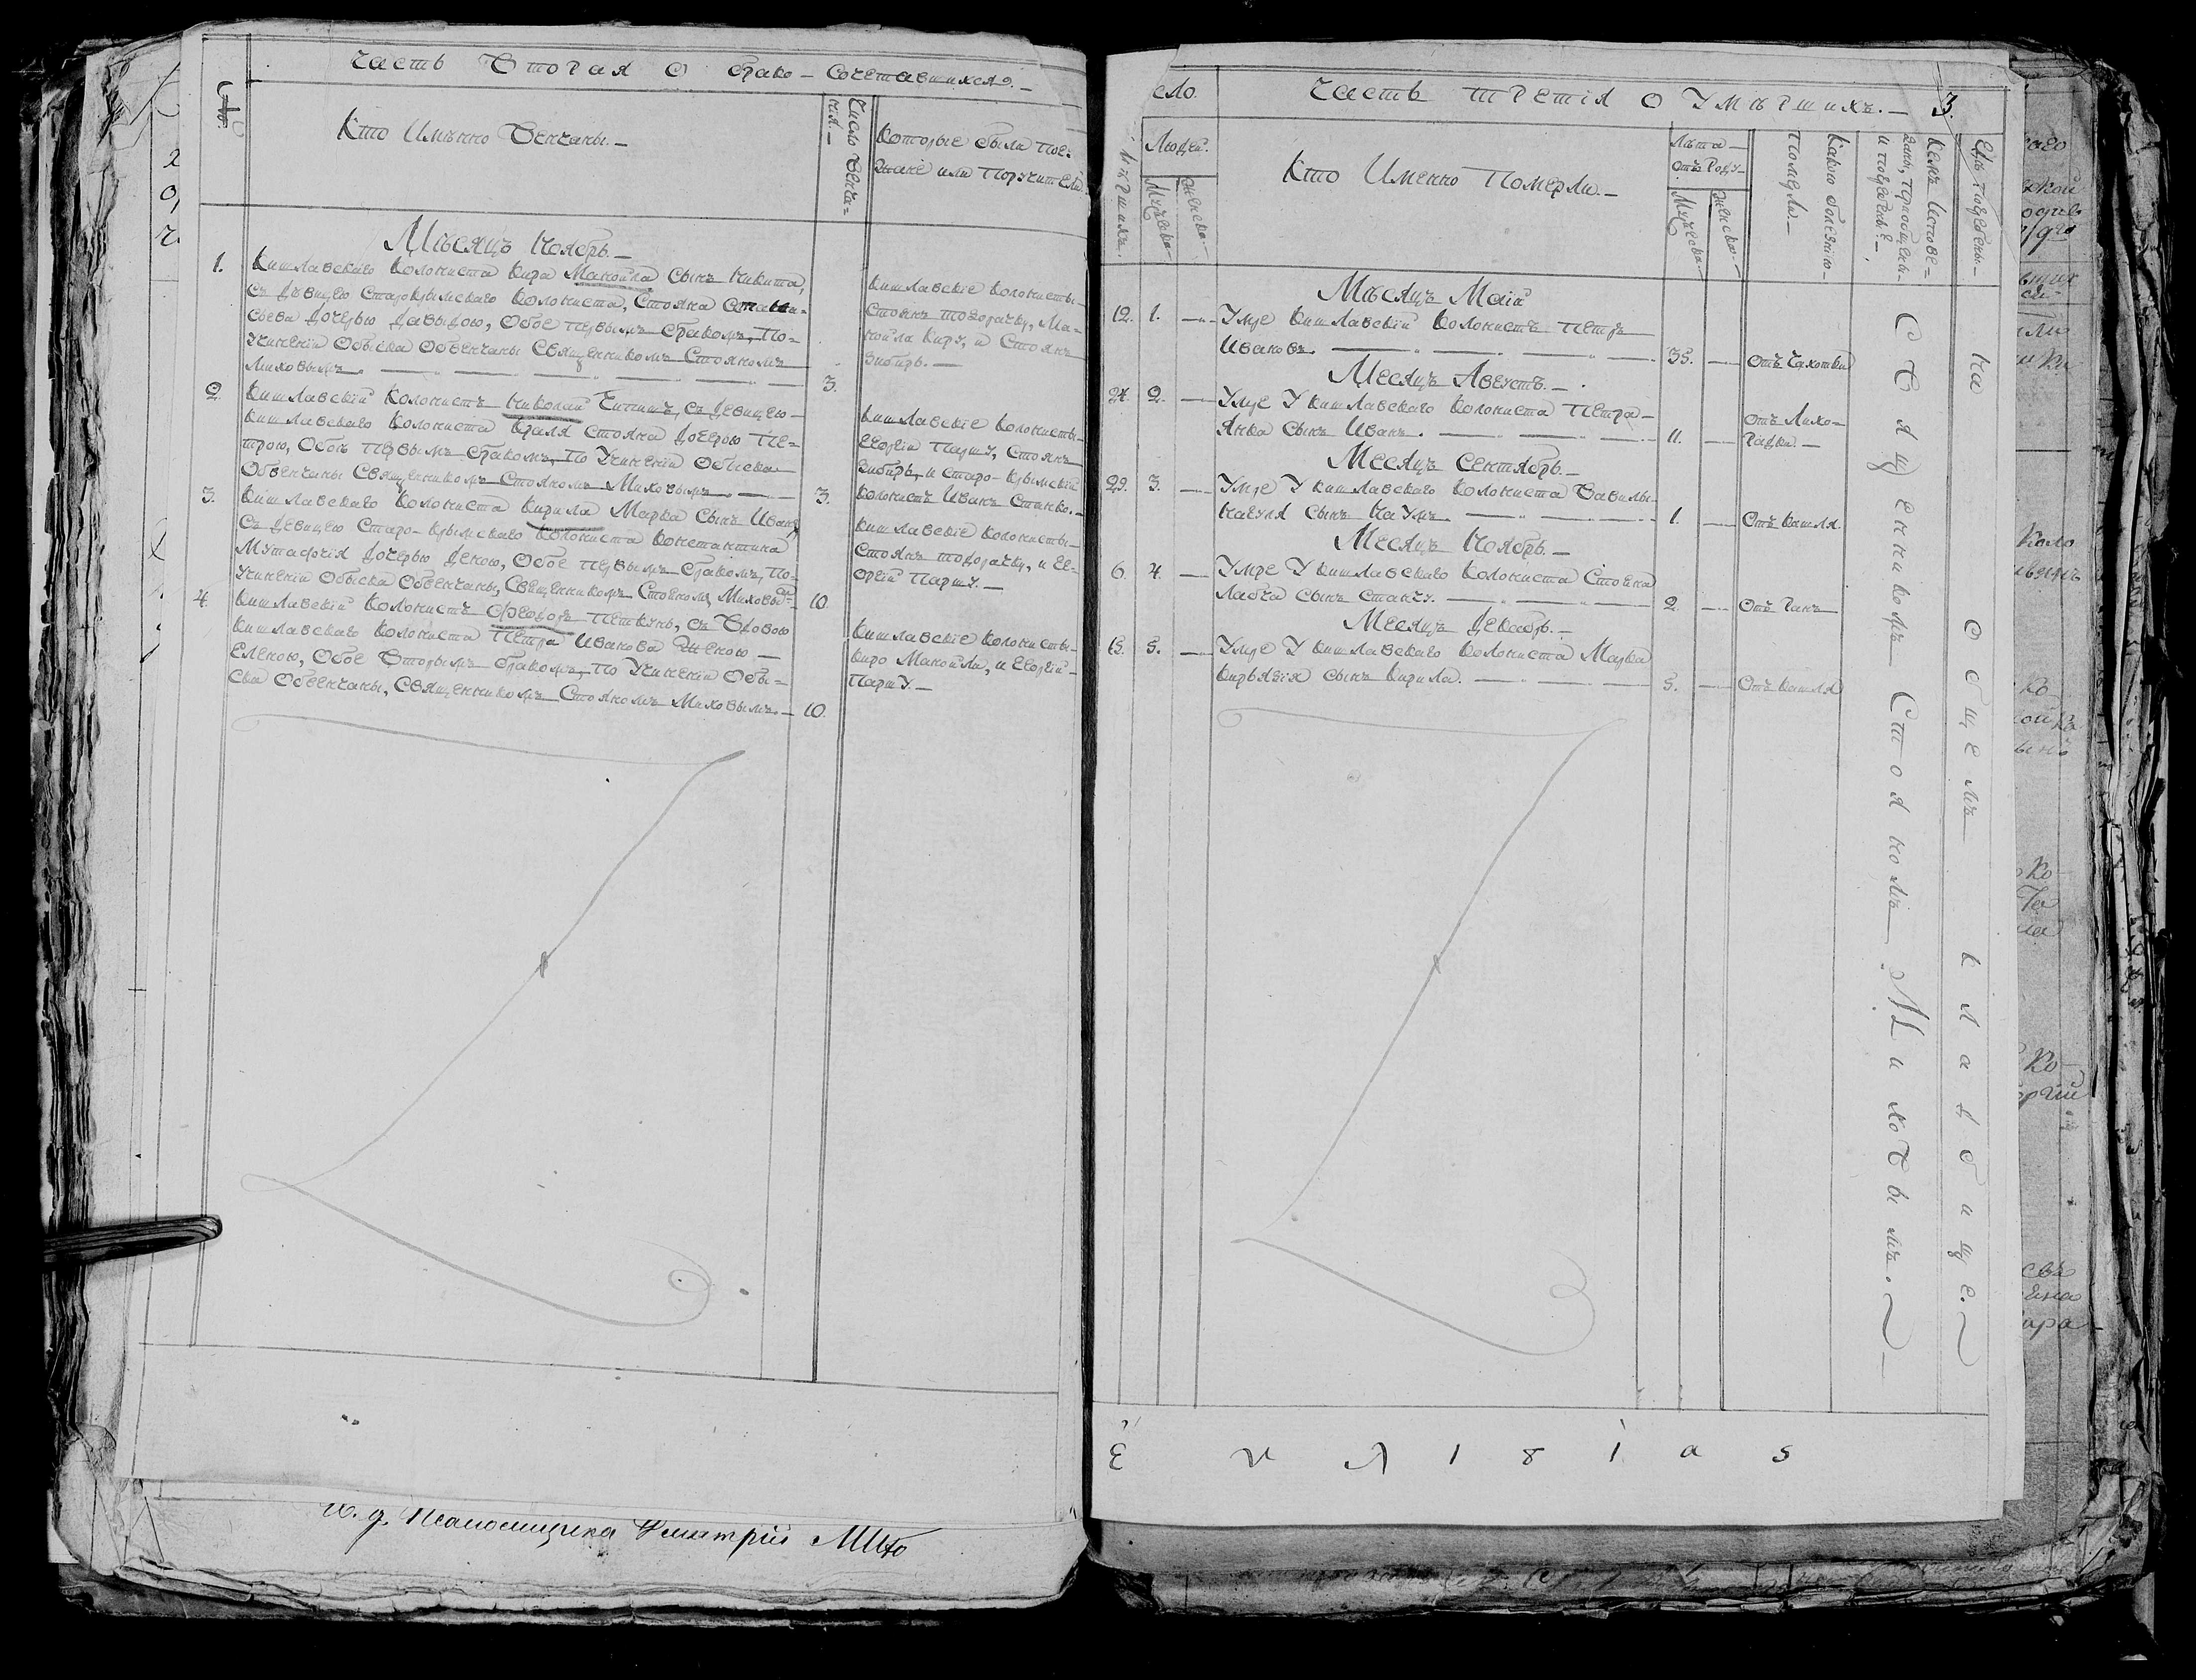 Часть Вторая О Брако – Сочетавшихся. –
№.
Кто Имѣнно Венчаны. –
Число Венча=
нія. –
Которые были Пое=
зжане или Поручители
Мѣсяцъ Ноябрь. –
1. Кишлавскаго Колониста Кира Манойла Сынъ Никита,
съ Девицею Старокрымскаго Колониста, Стояна
сьева Дочерью Давыдою, Обое первымъ бракомъ, По=
Учиненіи Обыска Обвенчаны Священникомъ Стояномъ
Миховымъ. 3.
Кишлавскіе Колонисты
Стоянъ Тодорачку, Ма=
нойла Киру, и Стоянъ
Зибирь. –
2. Кишлавскій Колонистъ Николай Чипишъ, съ Девицею –
Кишлавскаго Колониста Краля Стояна Дочерью Пе=
трою, Обоѣ первымъ бракомъ, По Учиненіи Обыска
Обвенчаны Священникомъ Стояномъ Миховымъ. 3.
Кишлавскіе Колонисты
Георгій Паршу, Стоянъ
Зибирь, и Старо-Крымскій
Колонистъ Иванъ Станко. –
3. Кишлавскаго Колониста Кирила Марка Сынъ Иванъ
съ Девицею Старо-Крымскаго Колониста Константина
Мутафчія Дочерью Деною, Обое первымъ бракомъ, По=
Учиненіи Обыска Обвенчаны, Священникомъ Стояномъ Миховымъ 10.
Кишлавскіе Колонисты
Стоянъ Тодорачку, и Ге=
оргій Паршу. –
4. Кишлавскій Колонистъ Феодоръ Петкувъ, съ Вдовою
Кишлавскаго Колониста Петра Иванова Женою –
Еленою, Обое Вторымъ бракомъ, По Учиненіи Обы=
ска Обвенчаны, Священникомъ Стояномъ Миховымъ. – 10.
Кишлавскіе Колонисты
Киро Манойла, и Георгій
Паршу. –
Дмитрій
сло.
Часть третія О Умѣршихъ. – 3.
Людей.
Мужеска –
Женска –
Кто Именно Померли. –
Лѣта –
Отъ Роду –
Мужеска. –
Женска. –
Какою болезнію –
Померли. –
Кемъ Исповѣ=
даны, пріобщены
и погребены. –
Гдѣ Погребены. –
Мѣсяцъ Маій
12. 1. Умре Кишлавскій Колонистъ Петръ
Ивановъ. 35. Отъ Чахотки
Месяцъ Августъ. –
24. 2. Умре У Кишлавскаго Колониста Петра –
Янка Сынъ Иванъ. 11. Отъ Лихо=
радки. –
Месяцъ Сентябрь. –
29. 3. Умре У Кишлавскаго Колониста Вавилы
Сынъ Наумъ. 1. Отъ Кашля.
Месяцъ Ноябрь. –
6. 4. Умре У Кишлавскаго Колониста Стояна
Лабча Сынъ Станчу. 2. Отъ Ранъ
Месяцъ Декабрь. –
15. 5. Умре У Кишлавскаго Колониста Марка
Кирьязія Сынъ Кирила. 5. Отъ Кашля
Священникомъ Стояномъ Миховымъ. –
На Общемъ Кладбище. –